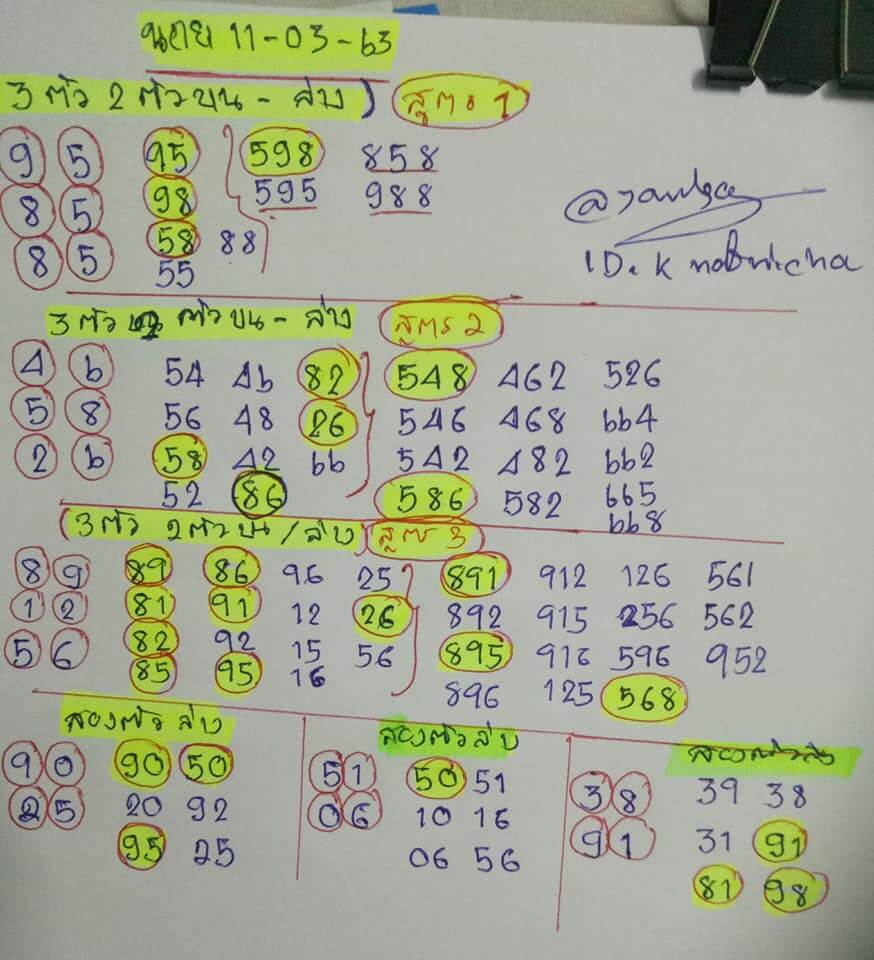 ฮานอย 11-03-63
3 ตัว 2 ตัวบน - ล่าง สูตร 1
9 5 95 598 858
8 5 98 595 988
8 5 58 88
55
ID. K
3 ตัว 2 ตัวบน - ล่าง สูตร 2
4 6 54 46 82 548 462 526
5 8 56 48 26 546 468 664
2 6 58 42 66 542 482 662
52 86 586 582 665
668
3 ตัว 2 ตัวบน / ล่าง สูตร 3
8 9 89 86 96 25 891 912 126 561
1 2 81 91 12 26 892 915 256 562
5 6 82 92 15 56 895 916 596 952
85 95 16 896 125 568
สองตัวล่าง
9 0 90 50
2 5 20 92
95 25
สองตัวล่าง
5 1 50 51
0 6 10 16
06 56
สองตัวล่าง
3 8 39 38
9 1 31 91
81 98